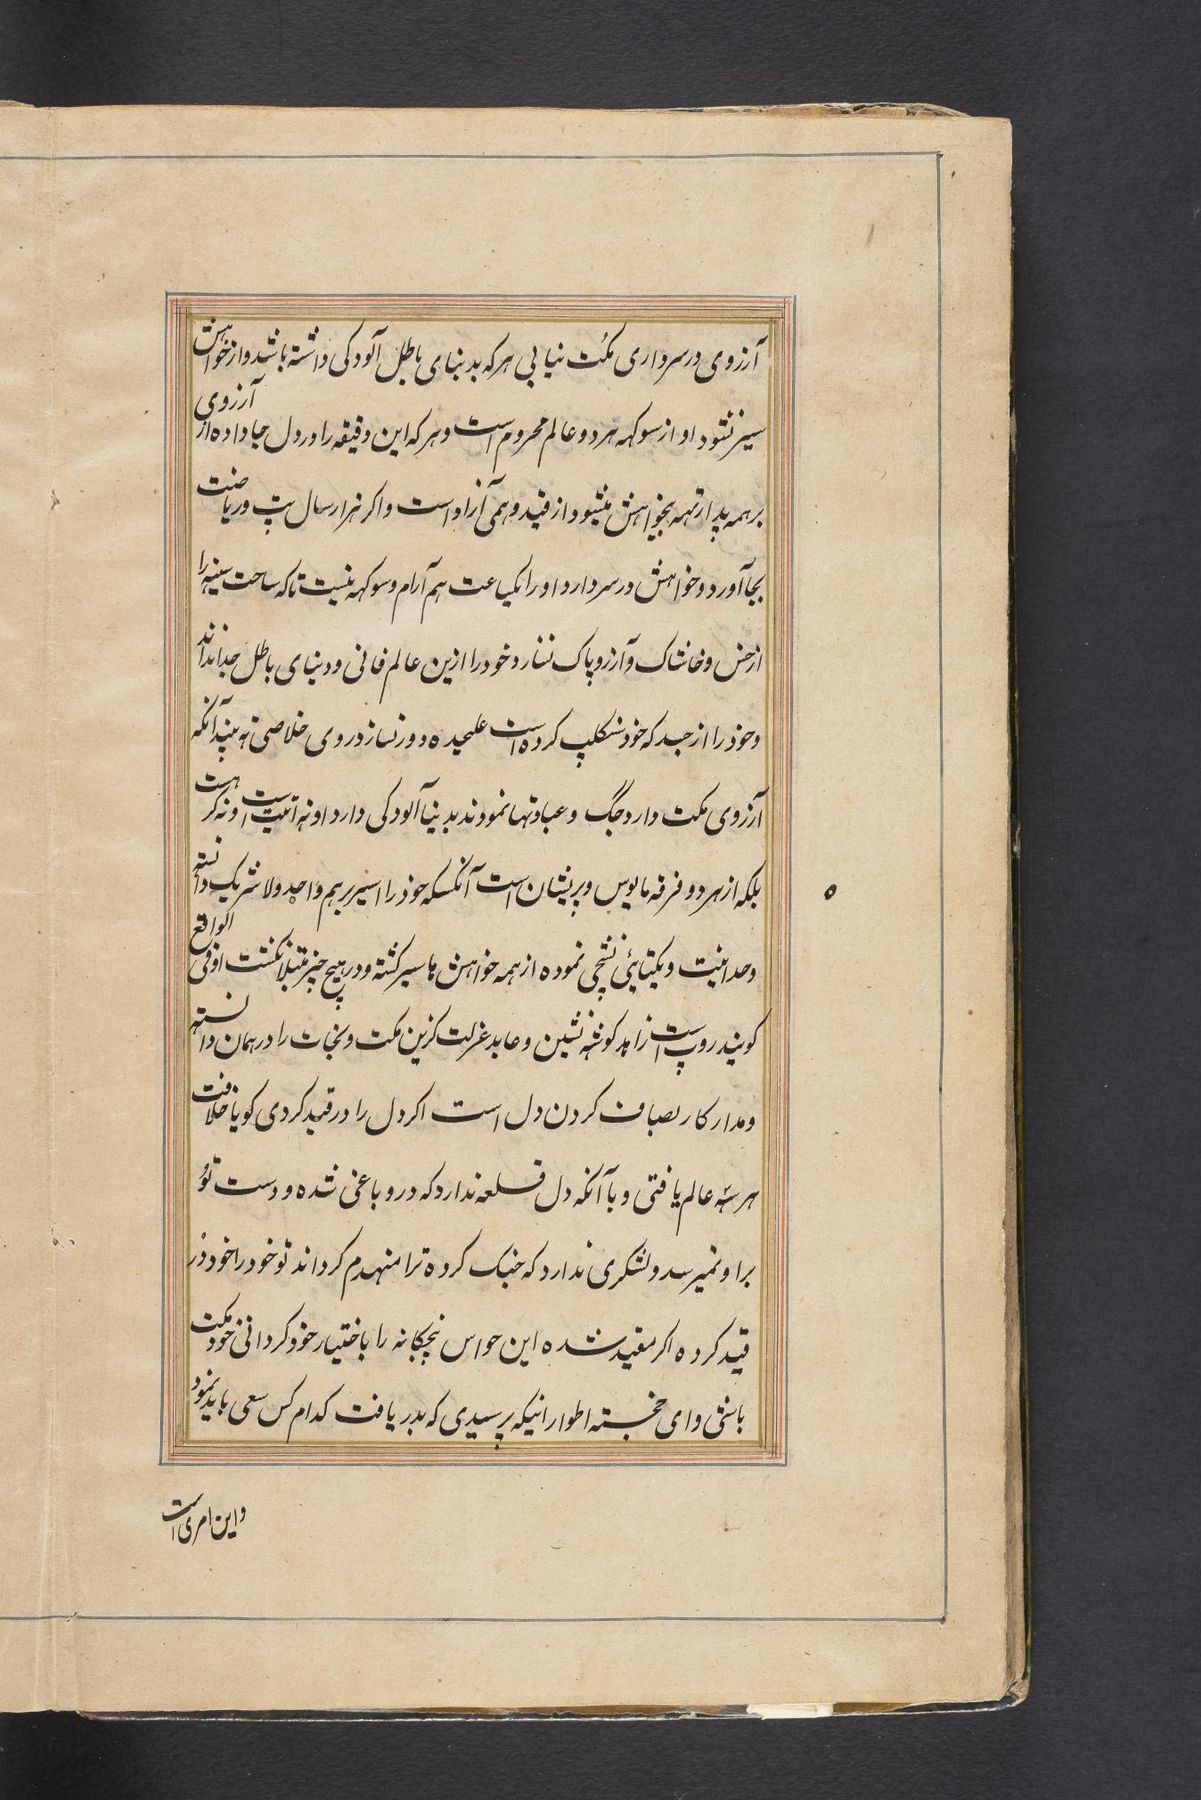 آرزوی در سر داری مکت نیابی هر که بدنیای باطل آلودکی داشته باشد و از خواهش
سیر نشود او از سوکهه هر دو عالم محروم است و هر که این دقیقه را در دل جا داده از آرزوی
بر همه بخواهش میشود از قید وهمی آزاد است و اکر هزار سال تپ و ریاضت
بجا آورد و خواهش در سر دارد او را یکساعت هم آرام و سوکهه نیست تا که ساحت سینه را
از خس و خاشاک و آرزو پاک نسازد خود را ازین عالم فانی و دنیای باطل جدا نداند
و خود را از جسد که خود سنکلپ کرده است علیحده و دور نسازد روی خلاصی نه بیند آنکه
آرزوی مکت دارد جگ و عبادتها نمودند بدنیا آلودکی دارد او نه است او نه کر هست
بلکه از هر دو فرقه مایوس و پریشان است آنکسکه خود را برهم واحد و لا شریک دانسته
وحدانیت و یکتایئ نموده از همه خواهش ها سیر کشته و در هیچ چیز مبتلا نکشت او فی الواقع
کویند روپ است زاهد کوشه نشین و عابد عزلت کزین مکت و نجات را در همان دانسته
و مدار کار بصاف کردن دل است اکر دل را در قید کردی کویا خلافت
هر سه عالم یافتی و با آنکه دل قلعه ندارد که درو باغی شده و دست تو
برا و نمیرسد و لشکری ندارد که جنک کرده ترا منهدم کرداند تو خود را خود در
قید کرده اکر مقید شده این حواس پنچکانه را باختیار خود کردانی خود مکت
باشی و ای خجسته اطوار اینکه پرسیدی که بدریافت کدام کس سعی باید نمود
و این امری است